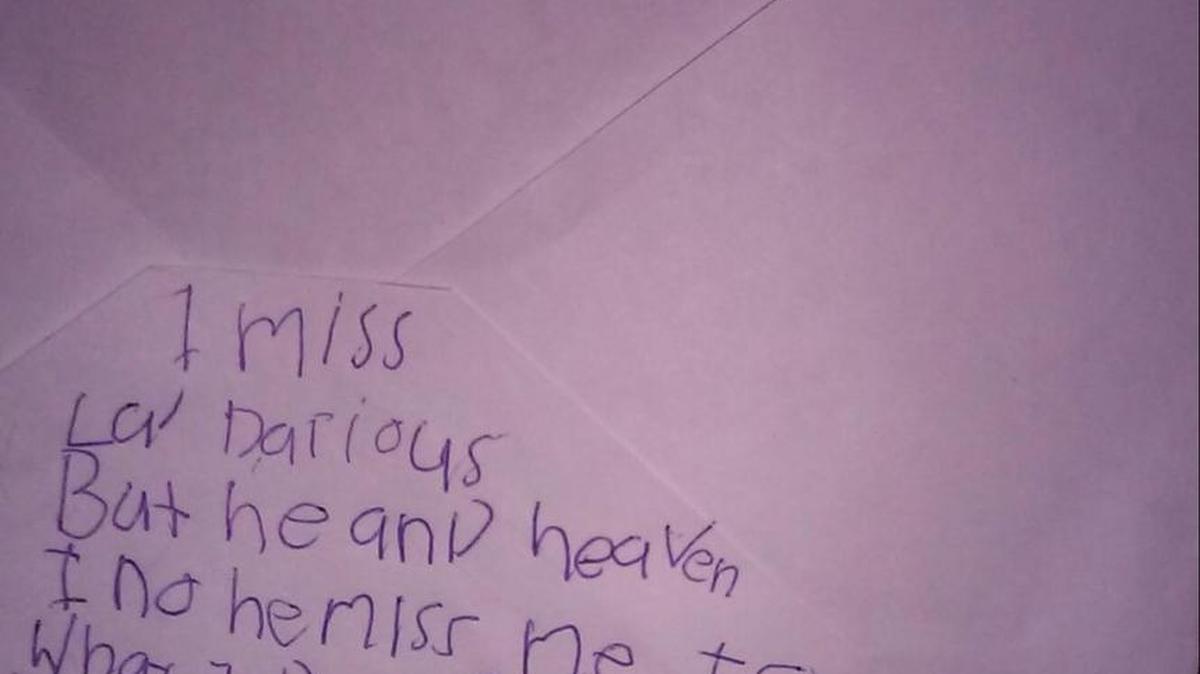 I miss
La' Darious
But he anD heaven
I no he miss me